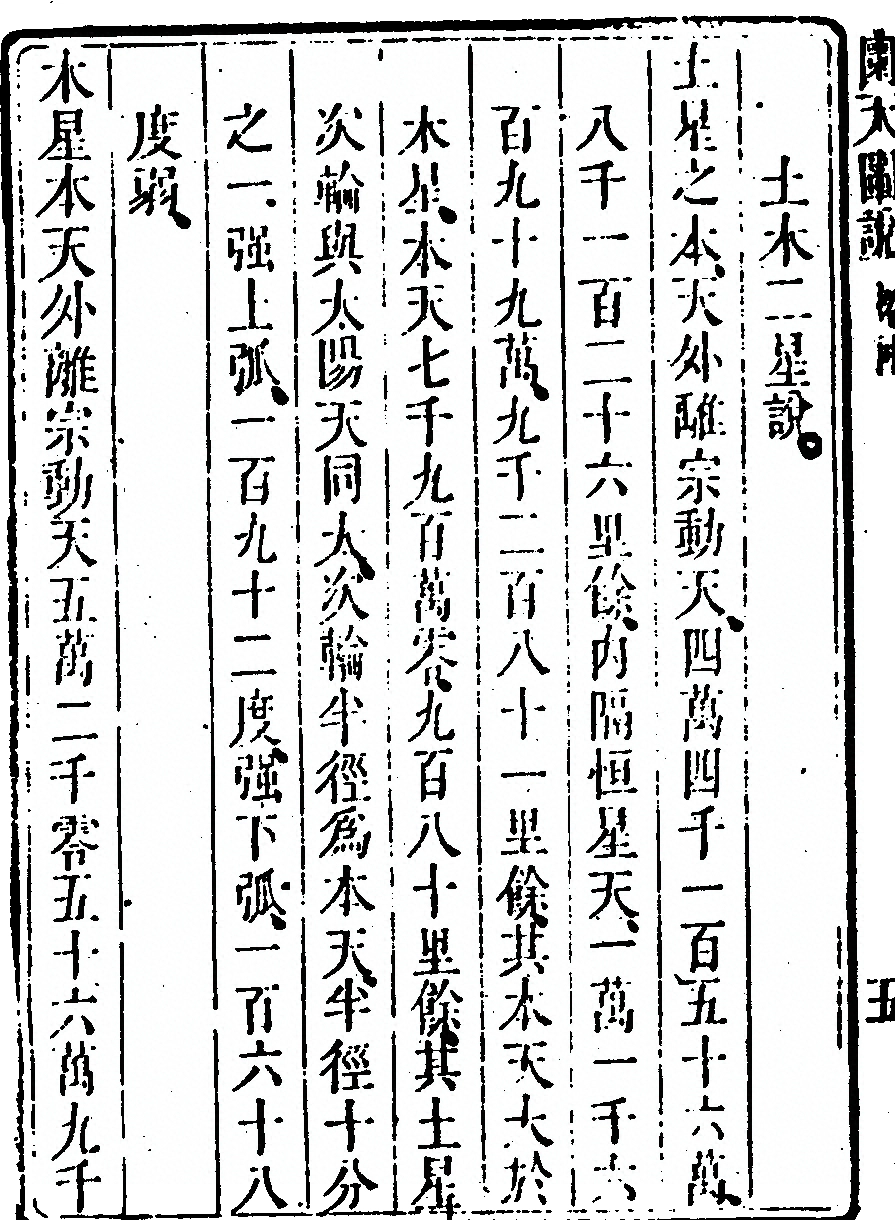 土木二星說
土星之本天外離宗動天四萬四千一百五十六萬
八千一百二十六里餘內隔恒星天一萬一千六
百九十九萬九千二百八十一里餘其本天大於
木星本天七千九百萬零九百八十里餘其土星
次輪與太陽天同大次輪半徑爲本天半徑十分
之一强上弧一百九十二度强下弧一百六十八
度弱
木星本天外離宗動天五萬二千零五十六萬九千
五